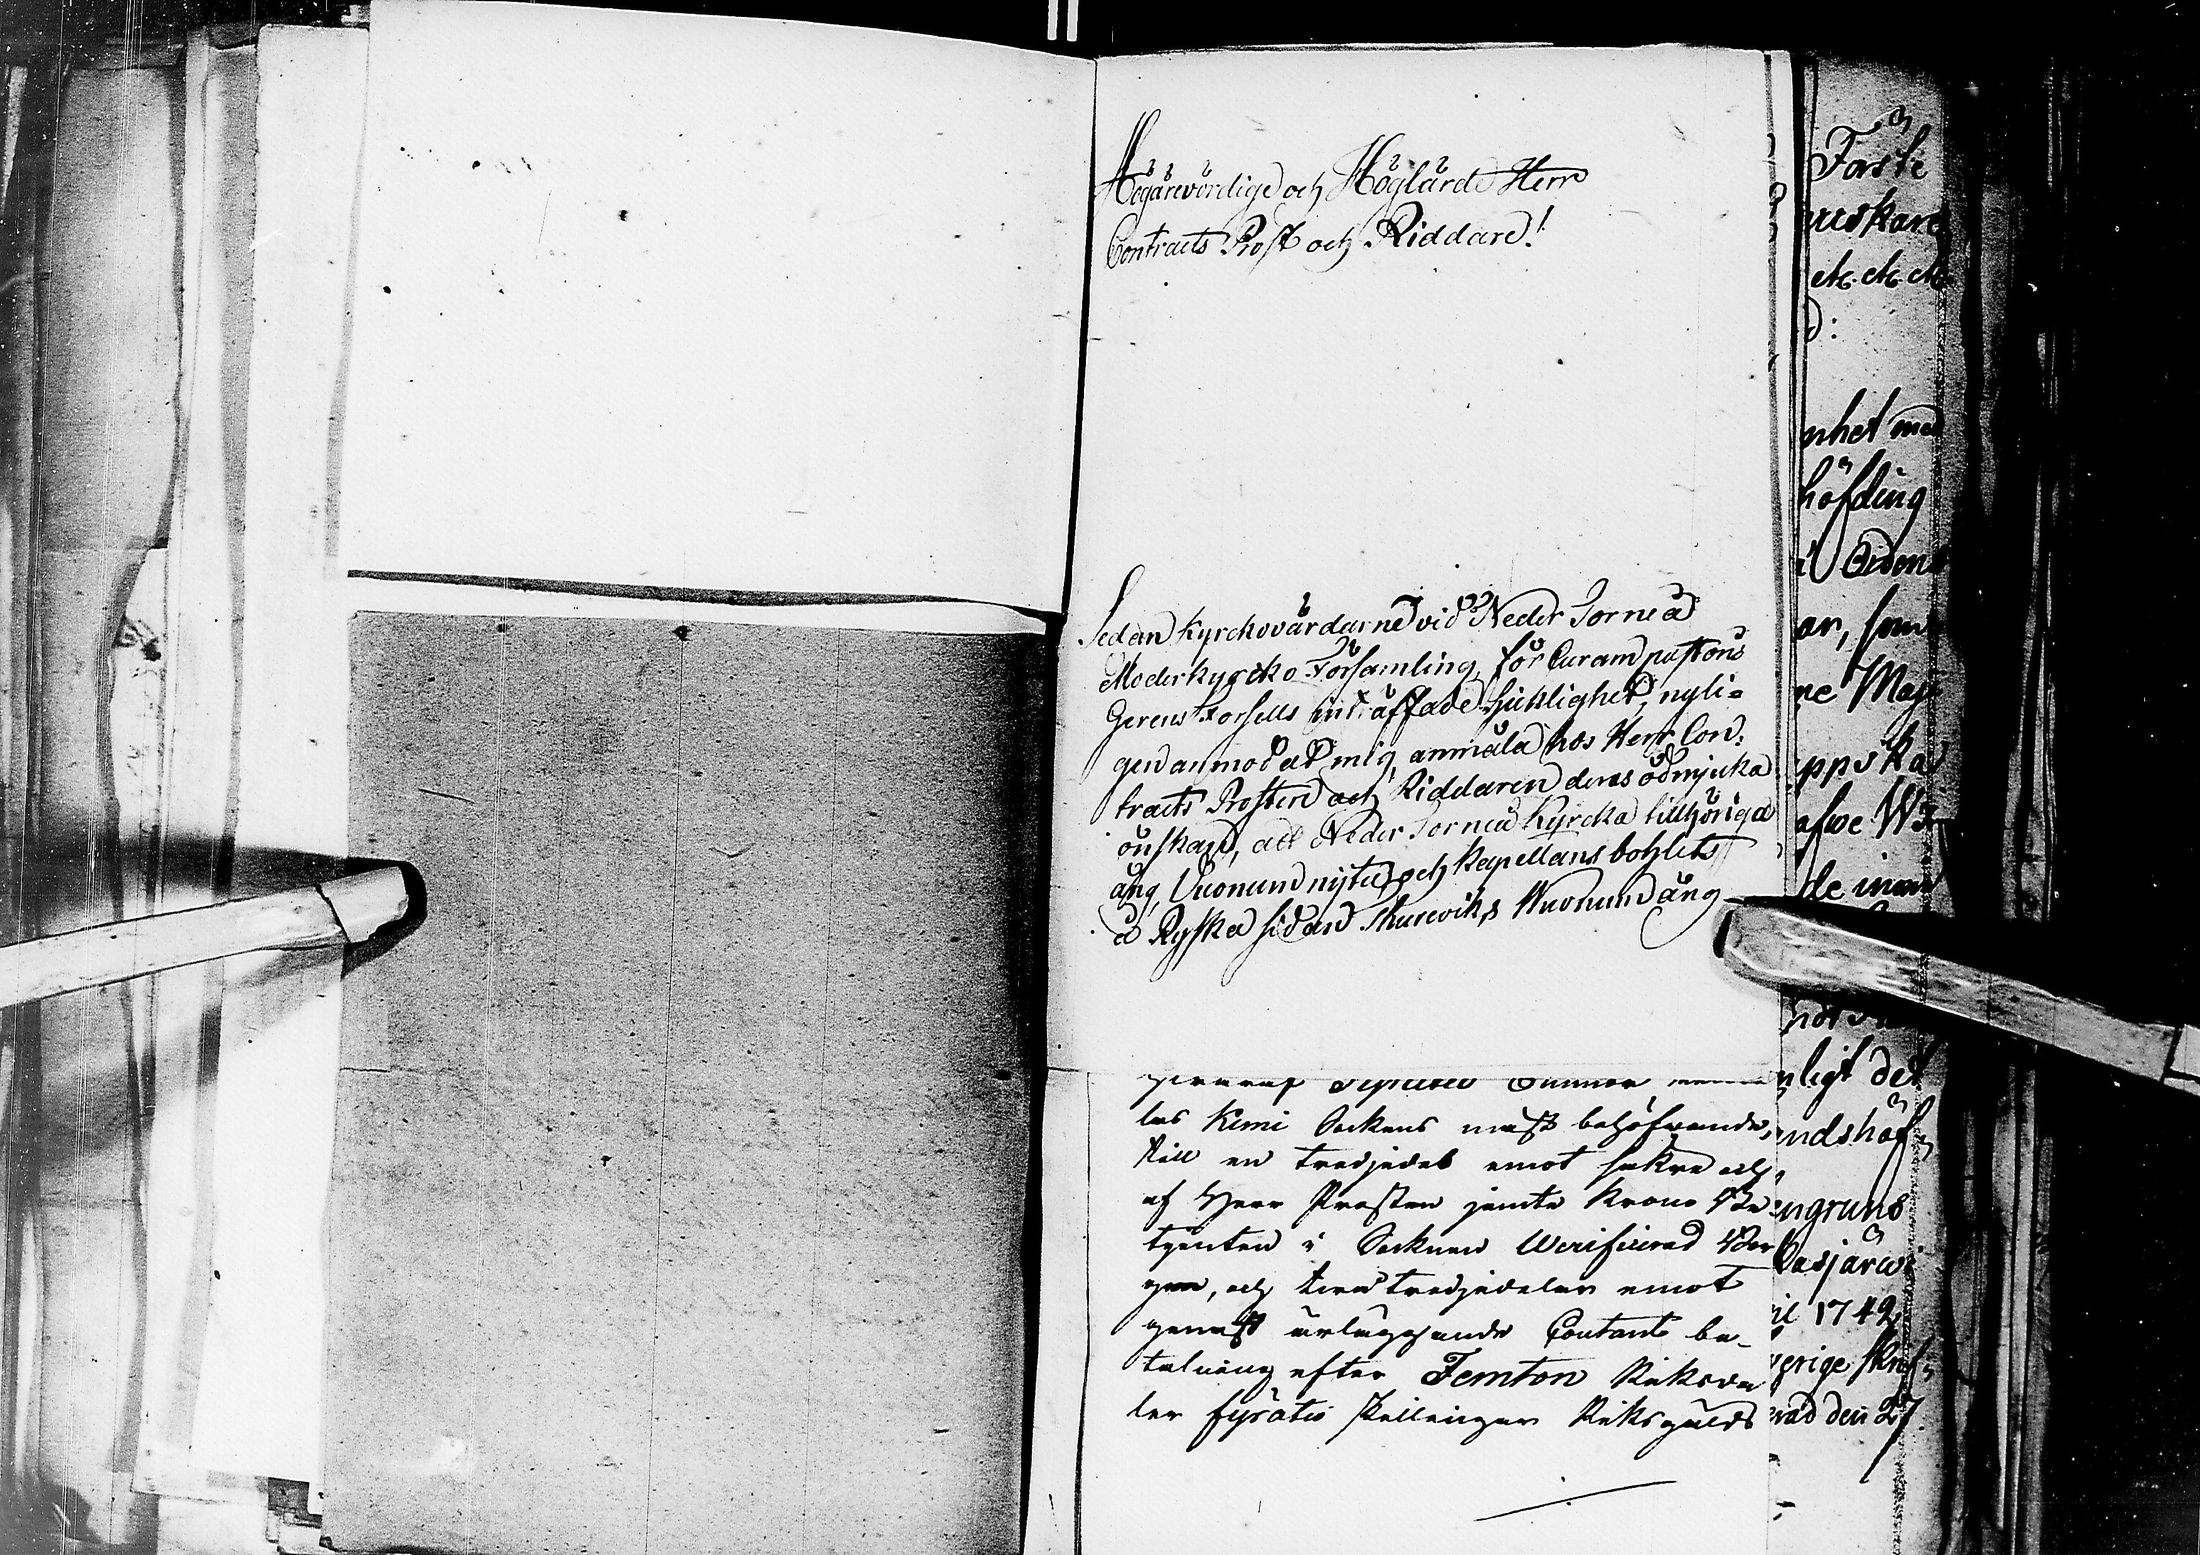 Högärevördige och Höglärde Herr
Contracts Prost och Riddare!
Sedan Kyrckovärdarne vid Neder Torneå
Moderkyrcko Församling, för Curam pastoris
Gerens Forsells inträffade Sjuklighet, nyli=
gen anmodat mig, anmäla hos Herr Con:
tracts Prosten och Riddaren deras ödmjuka
önskan, att Neder Torneå Kyrcka tillhöriga
äng, och Kapellans bohlets
å Ryska sidan äng
las Kemi Sockens mäst behöfvande,
till en tredjedel emot säkra och
af Herr Prosten jemte Krono Be
tjenten i Socknen Verificerad Bor
gen, och två tredjedelar emot
genast ärläggande Contant be-
talning efter Femton Riksda
ler fyratio Skillingar Riksgälds
Förste
etc. etc. etc.
nhet med
höfding
i Ordens
ar, som
ne Maj
ppska
de innom
nligt det
ndshöf=
engruns
asjärwi
il 1742
erige
den 27